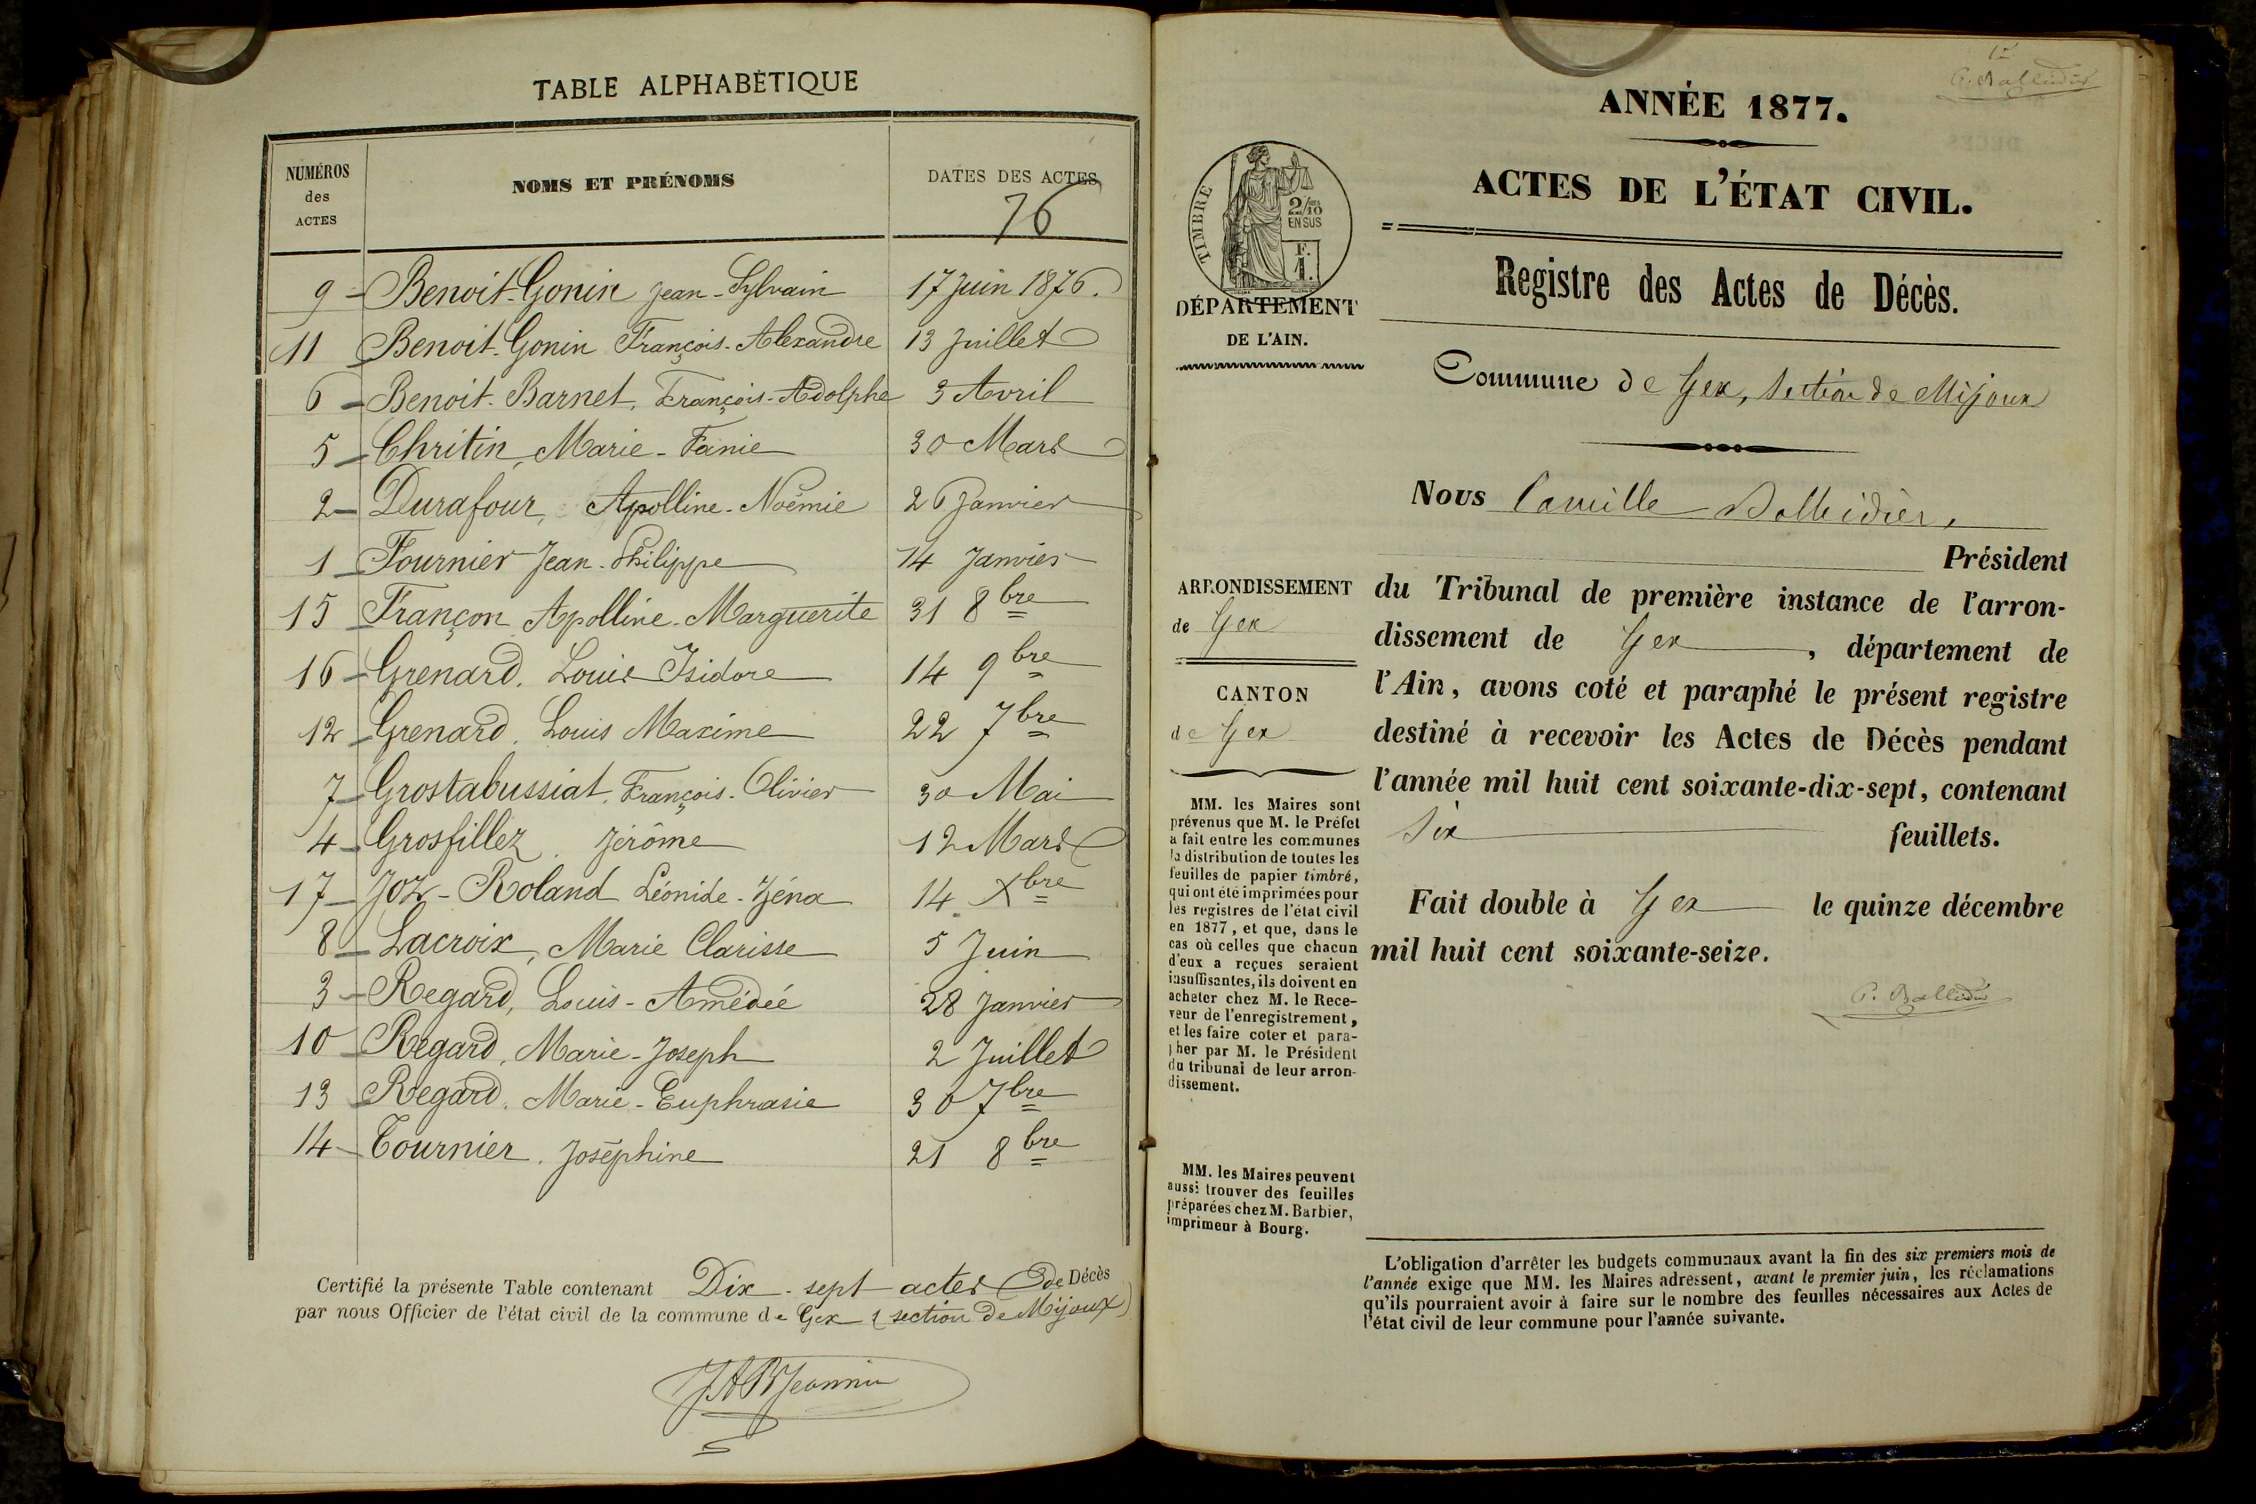 TABLE ALPHABÉTIQUE
NUMÉROS des ACTES
NOMS ET PRÉNOMS
DATES DES ACTES
76
9 - Benoit-Gonin Jean-Sylvain 17 Juin 1876.
11 Benoit-Gonin François-Alexandre 13 Juillet
6 - Benoit-Barnet, François-Adolphe 3 Avril
5 - Chritin, Marie-Fanie 30 Mars
2 - Durafour, Apolline-Noëmie 26 Janvier
1 - Fournier Jean-Philippe 14 Janvier
15 Françon Apolline-Marguerite 31 8bre
16 - Grenard. Louis Isidore 14 9bre
12 - Grenard. Louis Maxime 22 7bre
7 - Grostabussiat, François-Olivier 30 Mai
4 - Grosfillez. Jérôme 12 Mars
17 - Joz-Roland Léonide-Zéna 14 Xbre
8 - Lacroix, Marie Clarisse 5 Juin
3 - Regard, Louis-Amédée 28 Janvier
10 - Regard, Marie-Joseph 2 Juillet
13 - Regard. Marie-Euphrasie 30 7bre
14 - Tournier. Joséphine 21 8bre
Certifié la présente Table contenant Dix-sept actes de Décès
par nous Officier de l'état civil de la commune de Gex (section de Mijoux)
JABJeannin
ANNÉE 1877.
ACTES DE L'ÉTAT CIVIL.
TIMBRE
2/10 EN SUS
F. 1.
DÉPARTEMENT
DE L'AIN.
Registre des Actes de Décès.
Commune de Gex, section de Mijoux
Nous Camille
Président
du Tribunal de première instance de l'arron-
dissement de Gex, département de
l'Ain, avons coté et paraphé le présent registre
destiné à recevoir les Actes de Décès pendant
l'année mil huit cent soixante-dix-sept, contenant
Six feuillets.
Fait double à Gex le quinze décembre
mil huit cent soixante-seize.
ARRONDISSEMENT
de Gex
CANTON
de Gex
MM. les Maires sont
prévenus que M. le Préfet
a fait entre les communes
la distribution de toutes les
feuilles de papier timbré,
qui ont été imprimées pour
les registres de l'état civil
en 1877, et que, dans le
cas où celles que chacun
d'eux a reçues seraient
insuffisantes, ils doivent en
acheter chez M. le Rece-
veur de l'enregistrement,
et les faire coter et para-
pher par M. le Président
du tribunal de leur arron-
dissement.
MM. les Maires peuvent
aussi trouver des feuilles
préparées chez M. Barbier,
imprimeur à Bourg.
L'obligation d'arrêter les budgets communaux avant la fin des six premiers mois de
l'année exige que MM. les Maires adressent, avant le premier juin, les réclamations
qu'ils pourraient avoir à faire sur le nombre des feuilles nécessaires aux Actes de
l'état civil de leur commune pour l'année suivante.